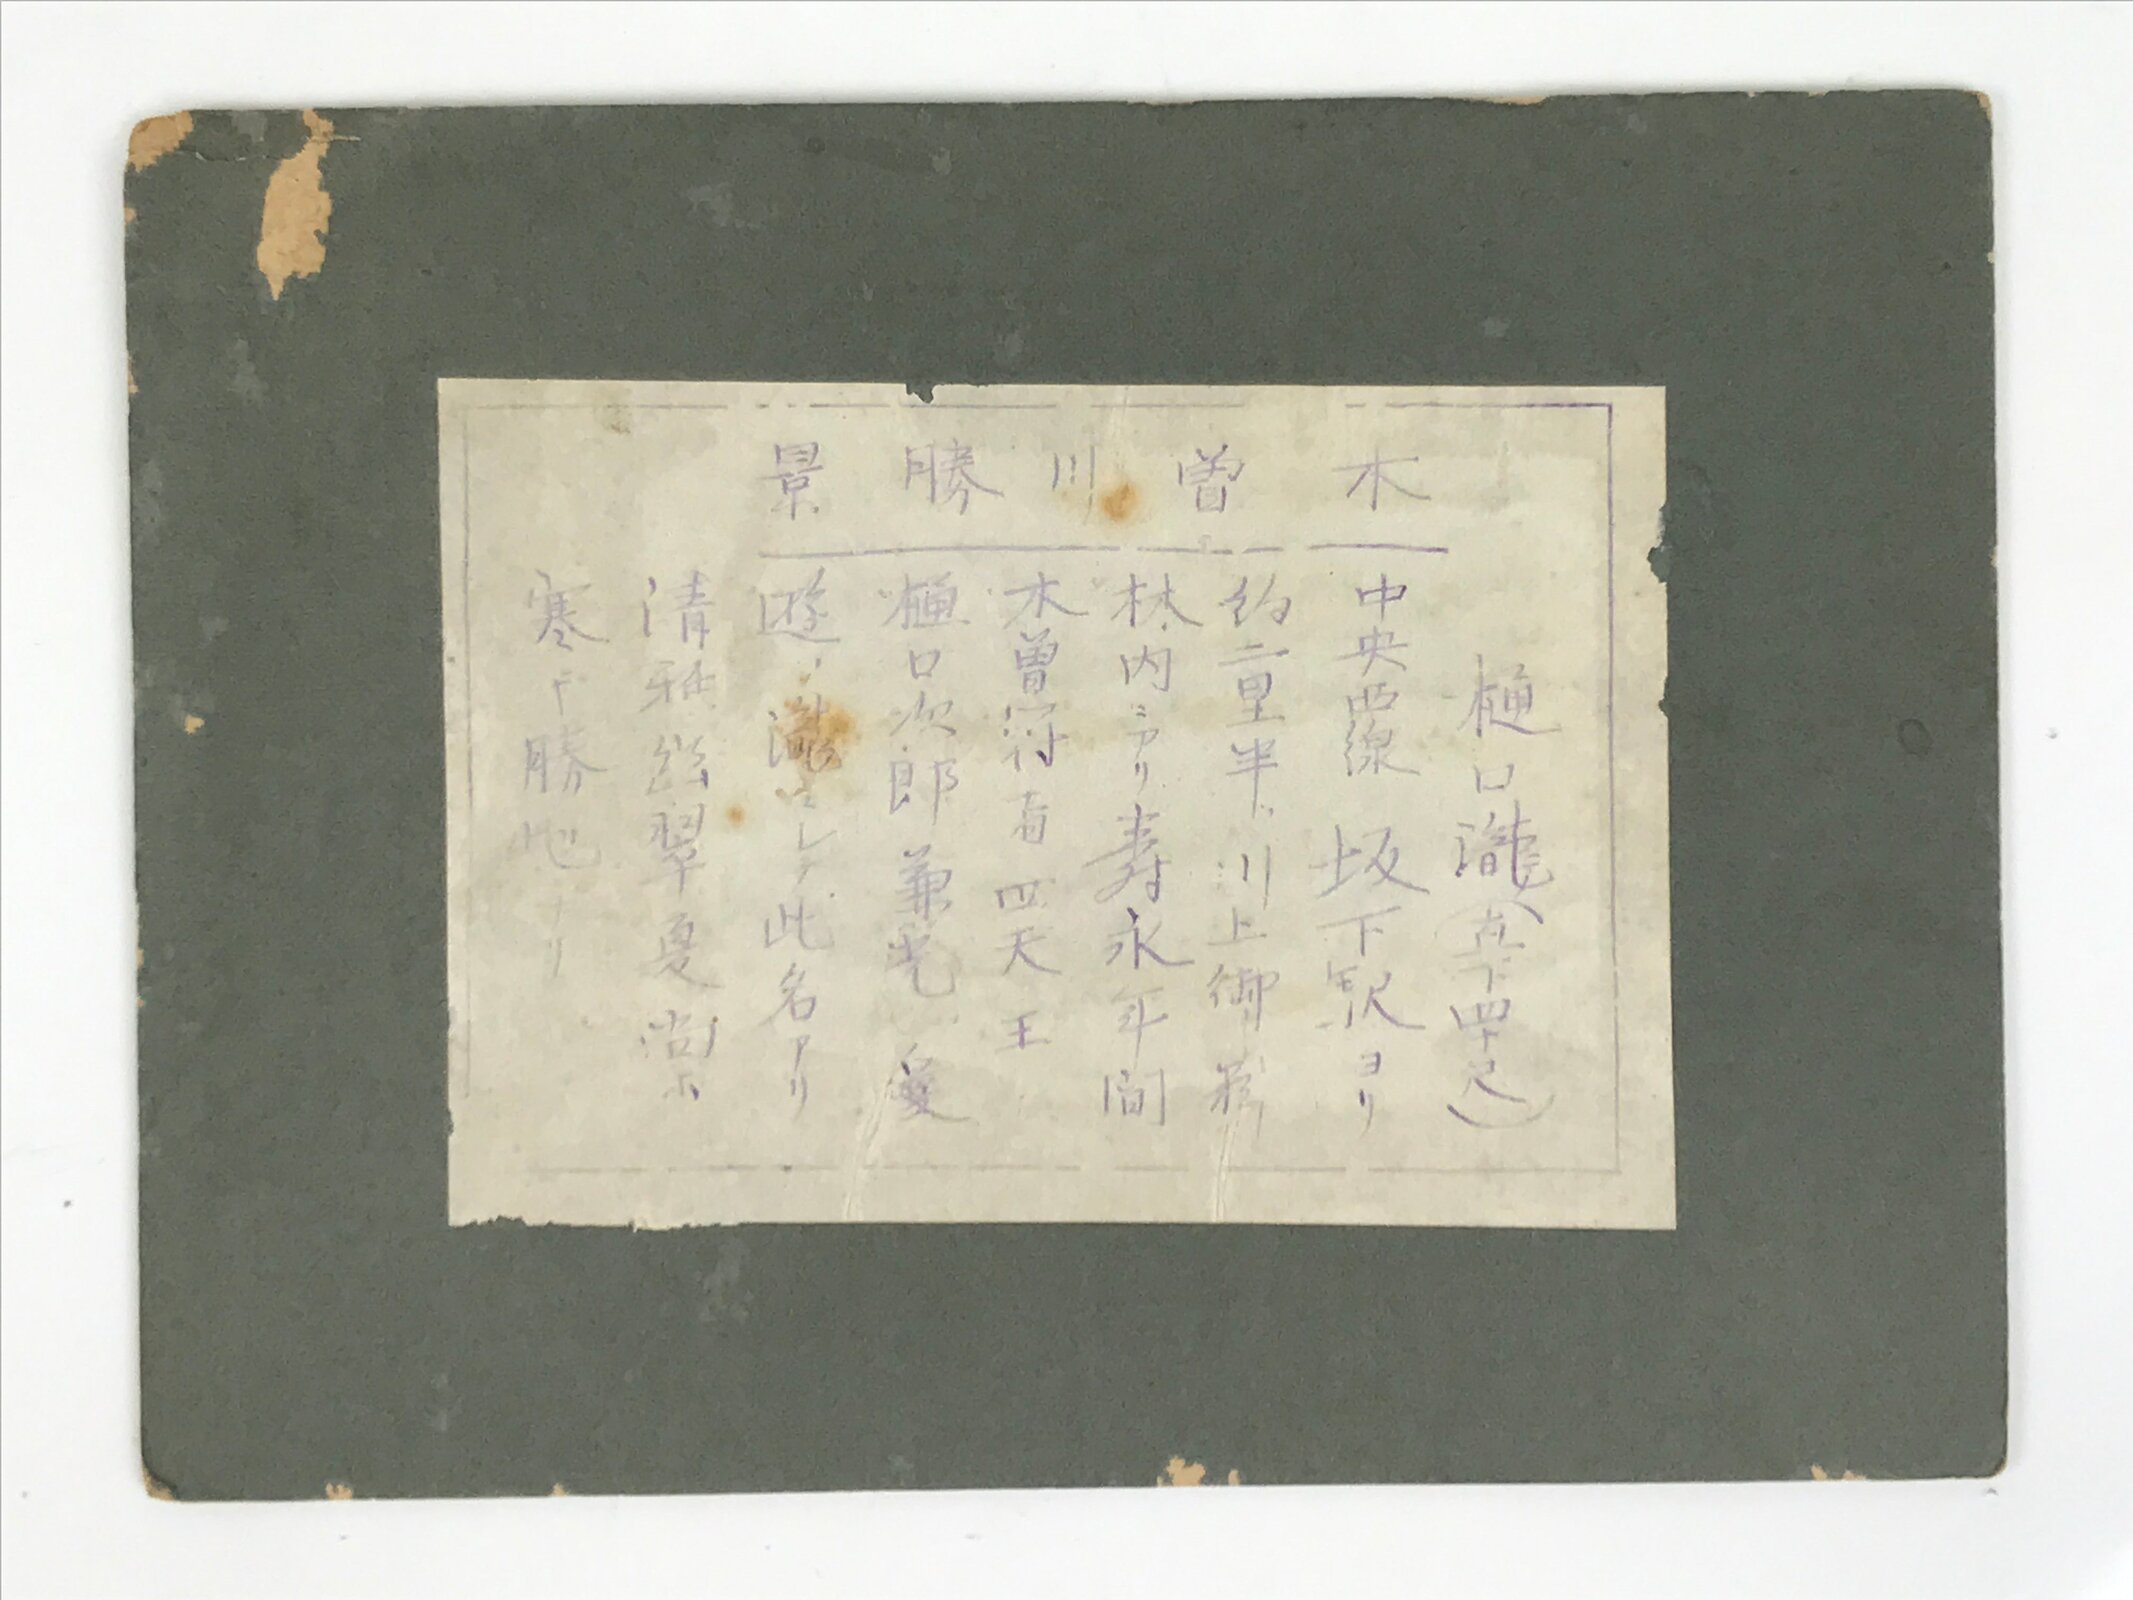 木曽川勝景
樋口瀧（五十四尺）
中央西線 坂下駅ヨリ
約二里半 川上御料
林内ニアリ壽永年間
木曽 四天王
樋口次郎兼光 愛
遊ノ瀧ニシテ此名アリ
清雅幽翠夏尚ホ
寒キ勝地ナリ